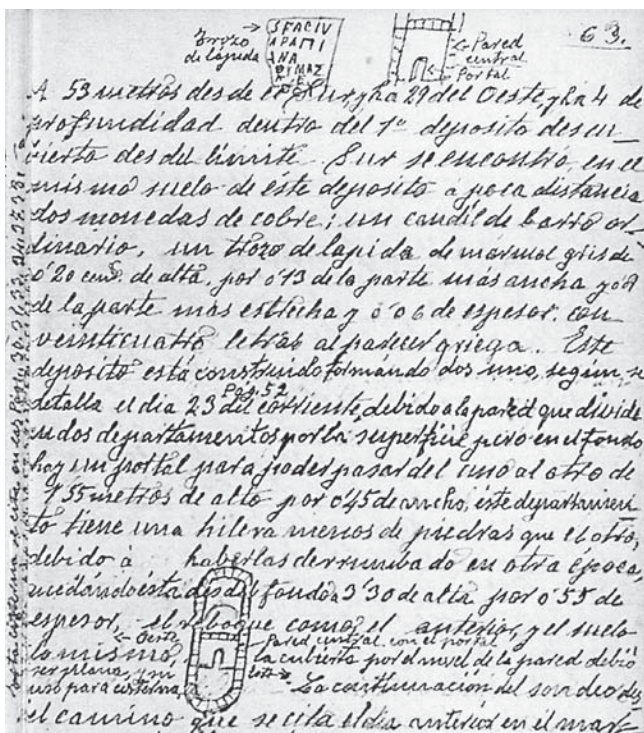 63.
Trozo de lapida
SFACIV
APAΠI
ANA
Pared central
Portal
A 53 metros desde el Sur, y ha 29 del Oeste, y ha 4 de
profundidad dentro del 1º deposito descu-
vierto desdel limite Sur se encontró, en el
mismo suelo de éste deposito á poca distancia
dos monedas de cobre; un candíl de barro or-
dinario, un trozo de lapida de marmol gris de
0'20 cent. de alta, por 0'13 de la parte más ancha y 0'9
de la parte mas estrecha y 0'06 de espesor, con
veinticuatro letras al parecer griega. Este
deposito está construido formándo dos uno, segun se
Pag. 52
detalla el dia 23 del corriente, debido a la pared que divide
en dos departamentos por la superficie pero en el fondo
hay un portal para poder pasar del uno al otro de
1'55 metros de alto por 0'45 de ancho, éste departamen-
to tiene una hilera menos de piedras que el otro,
debido á haberlas derrumbado en otra época
midándo ésta desdel fondo a 3'30 de alta por 0'55 de
espesor, el reboque como el anterior, y el suelo
Oeste
Pared central con el portal
lo mismo, la cubierta por el nivel de la pared debió
ser plana,
uso para cisterna,
Este
La continuación del sondeo des
el camino que se cita el dia anterior en el mar-